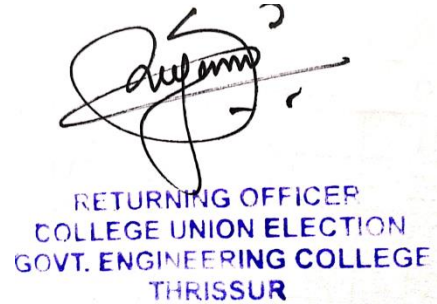 RETURNING OFFICER
COLLEGE UNION ELECTION
GOVT. ENGINEERING COLLEGE
THRISSUR